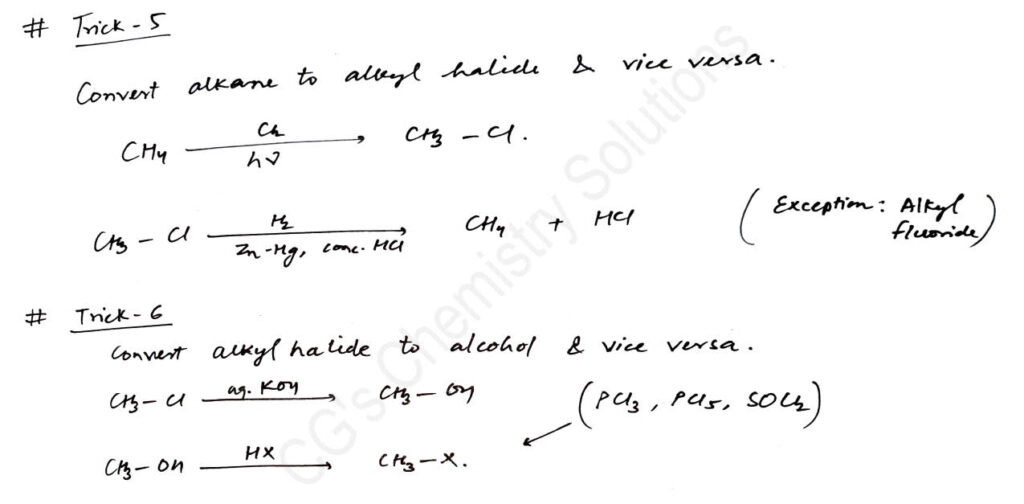 # Trick - 5
Convert alkane to alkyl halide & vice versa.
CH4 Cl2 hν CH3 - Cl.
CH3 - Cl H2 Zn-Hg, conc. HCl CH4 + HCl (Exception: Alkyl fluoride)
# Trick - 6
Convert alkyl halide to alcohol & vice versa.
CH3 - Cl aq. KOH CH3 - OH (PCl3, PCl5, SOCl2)
CH3 - OH HX CH3 - X.
CG's Chemistry Solutions